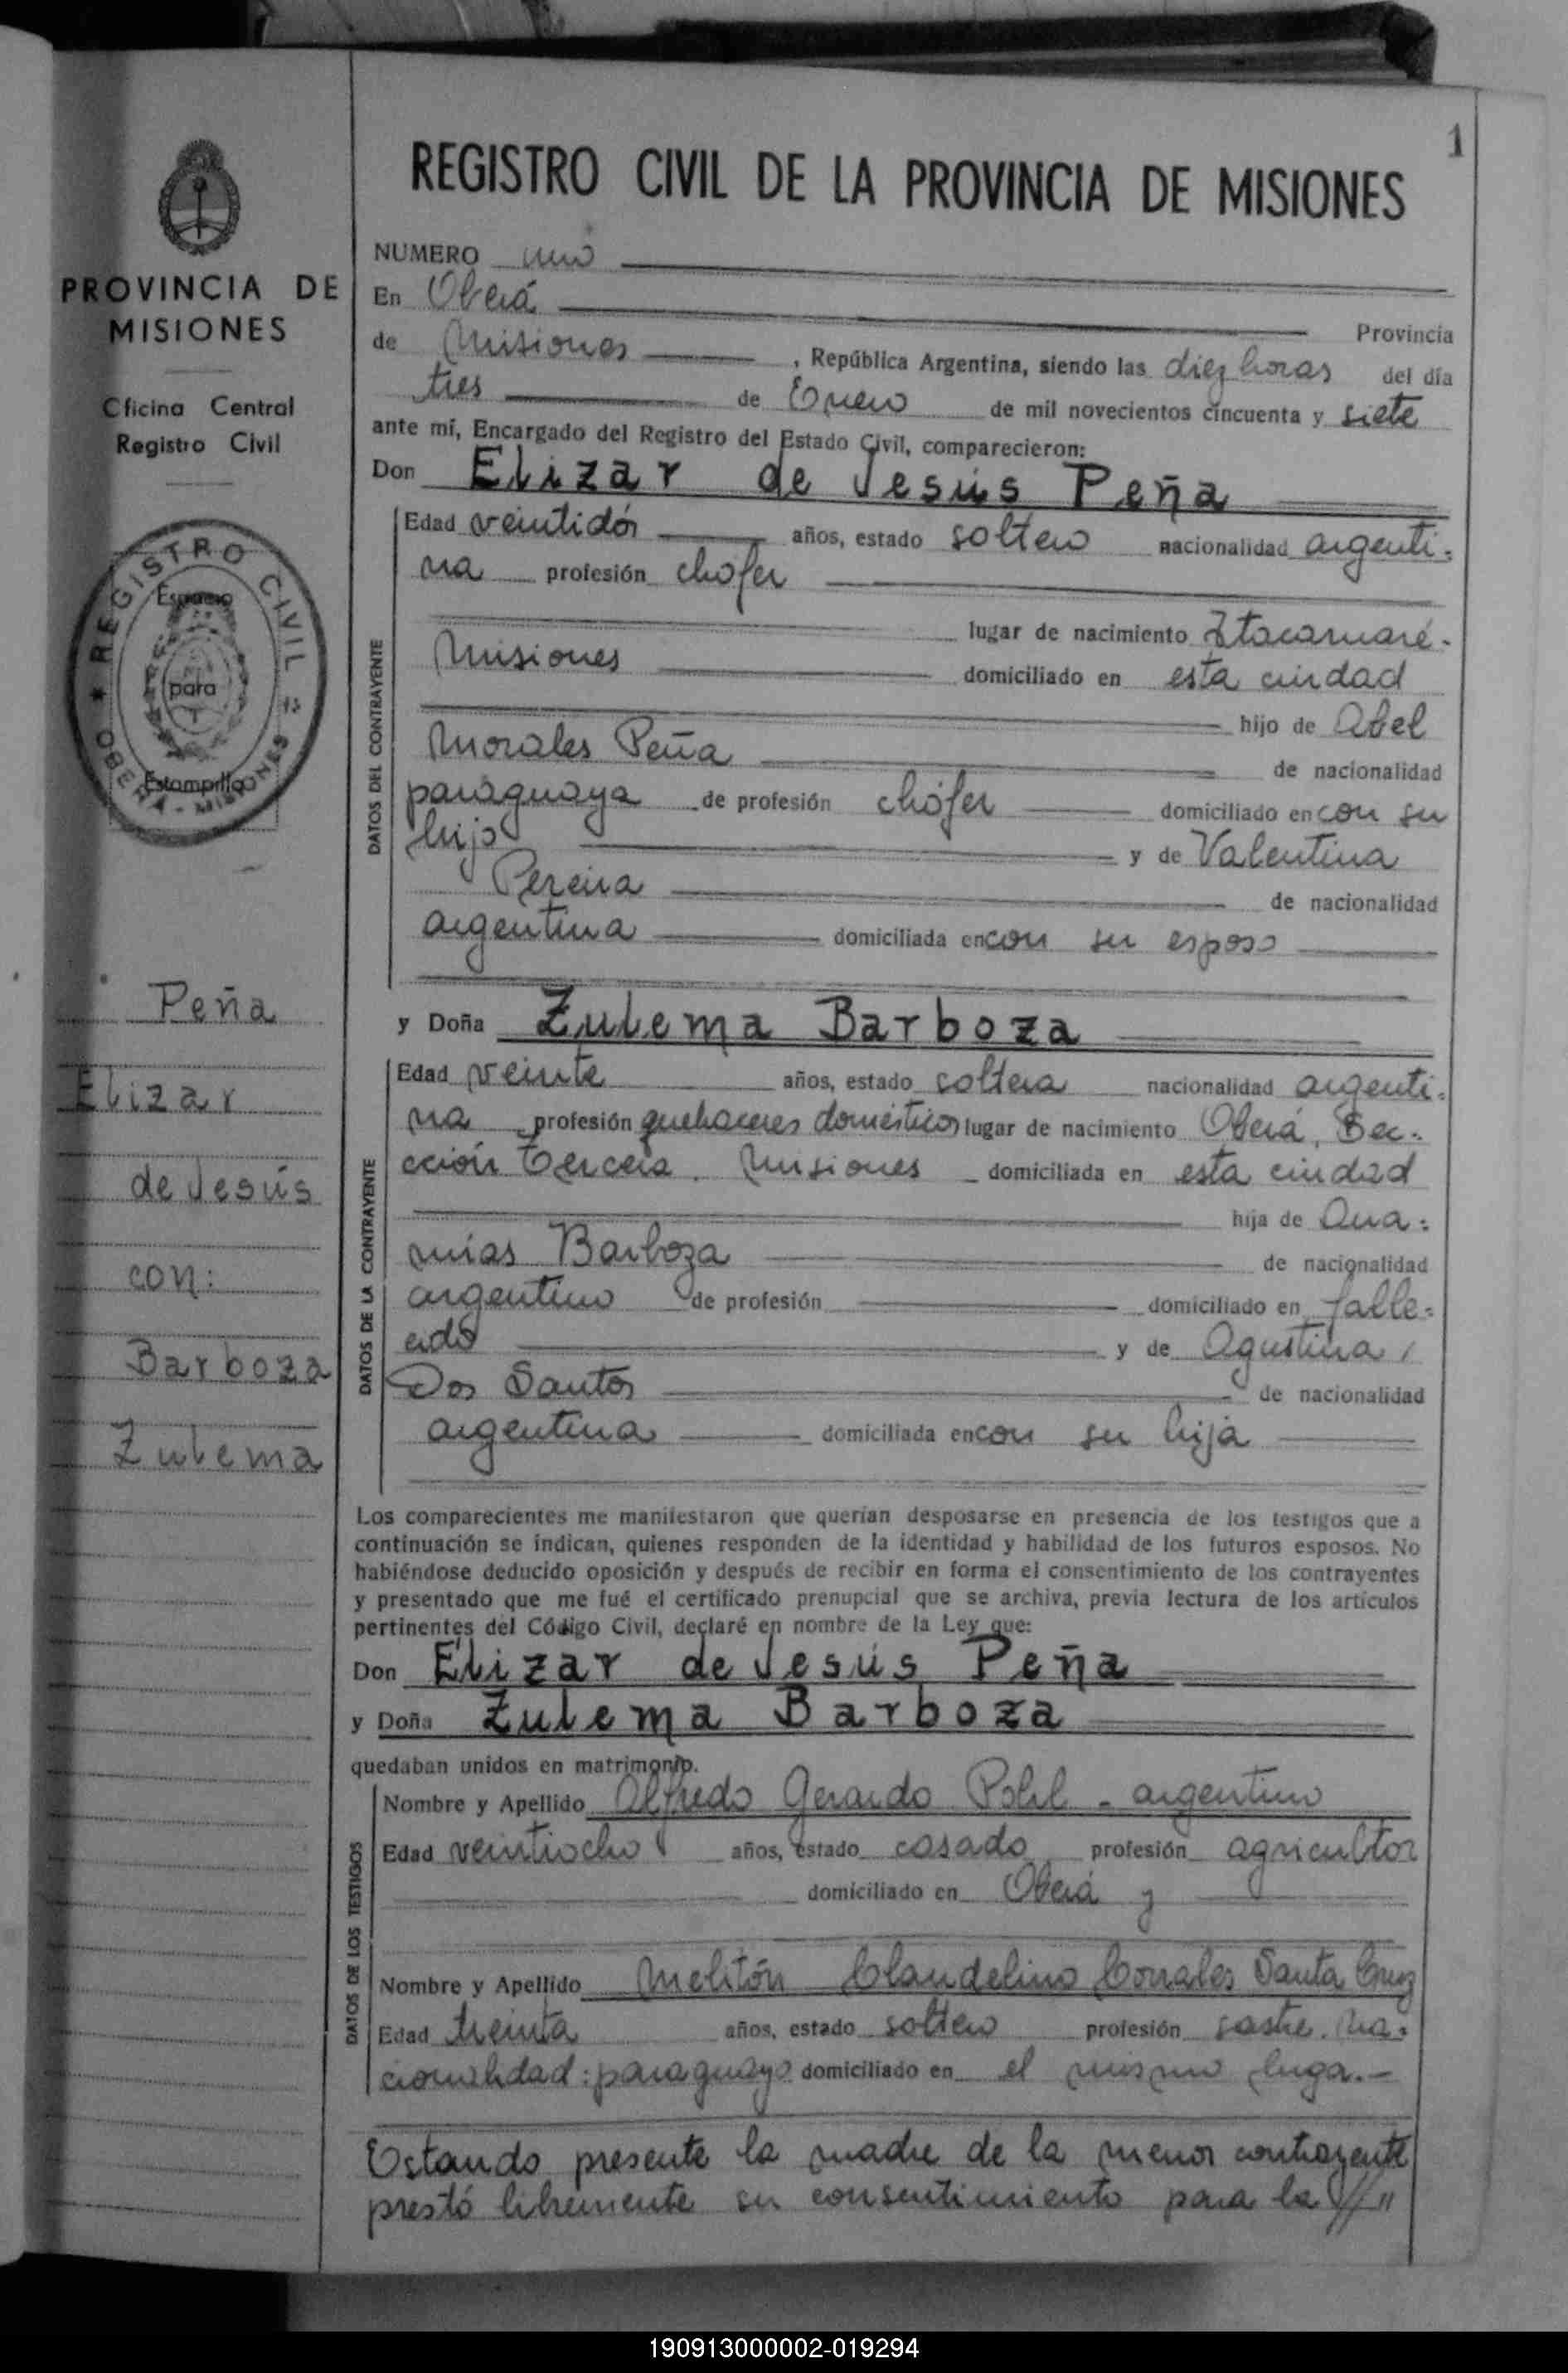 1
REGISTRO CIVIL DE LA PROVINCIA DE MISIONES
PROVINCIA DE
MISIONES
Oficina Central
Registro Civil
REGISTRO CIVIL
OBERA - MISIONES
Espacio
para
Estampilla
Peña
Elizar
de Jesús
con:
Barboza
Zulema
NUMERO uno
En Oberá Provincia
de Misiones, República Argentina, siendo las diez horas del día
tres de Enero de mil novecientos cincuenta y siete
ante mí, Encargado del Registro del Estado Civil, comparecieron:
Don Elizar de Jesús Peña
DATOS DEL CONTRAYENTE
Edad veintidós años, estado soltero nacionalidad argenti-
na profesión chófer
lugar de nacimiento Itacaruaré-
Misiones domiciliado en esta ciudad
hijo de Abel
Morales Peña de nacionalidad
paraguaya de profesión chófer domiciliado en con su
hijo y de Valentina
Pereira de nacionalidad
argentina domiciliada en con su esposo
y Doña Zulema Barboza
DATOS DE LA CONTRAYENTE
Edad veinte años, estado soltera nacionalidad argenti-
na profesión quehaceres domésticos lugar de nacimiento Oberá, Sec-
cción Tercera. Misiones domiciliada en esta ciudad
hija de Ana-
nías Barboza de nacionalidad
argentino de profesión domiciliado en falle-
cido y de Agustina
Dos Santos de nacionalidad
argentina domiciliada en con su hija
Los comparecientes me manifestaron que querían desposarse en presencia de los testigos que a
continuación se indican, quienes responden de la identidad y habilidad de los futuros esposos. No
habiéndose deducido oposición y después de recibir en forma el consentimiento de los contrayentes
y presentado que me fué el certificado prenupcial que se archiva, previa lectura de los artículos
pertinentes del Código Civil, declaré en nombre de la Ley que:
Don Elizar de Jesús Peña
y Doña Zulema Barboza
quedaban unidos en matrimonio.
DATOS DE LOS TESTIGOS
Nombre y Apellido Alfredo Gerardo Pohl - argentino
Edad veintiocho años, estado casado profesión agricultor
domiciliado en Oberá y
Nombre y Apellido Melitón Claudelino Corrales Santa Cruz
Edad treinta años, estado soltero profesión sastre. Na-
cionalidad: paraguayo domiciliado en el mismo luga.-
Estando presente la madre de la menor contrayente
prestó libremente su consentimiento para la //"
190913000002-019294